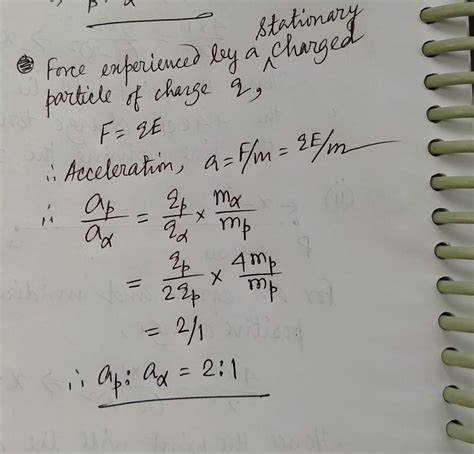 β : α
Force experienced by a stationary charged
particle of charge q,
F = qE
∴ Acceleration, a = F/m = qE/m
∴ aₚ/a_α = qₚ/q_α × m_α/mₚ
= qₚ/2qₚ × 4mₚ/mₚ
= 2/1
∴ aₚ : a_α = 2:1